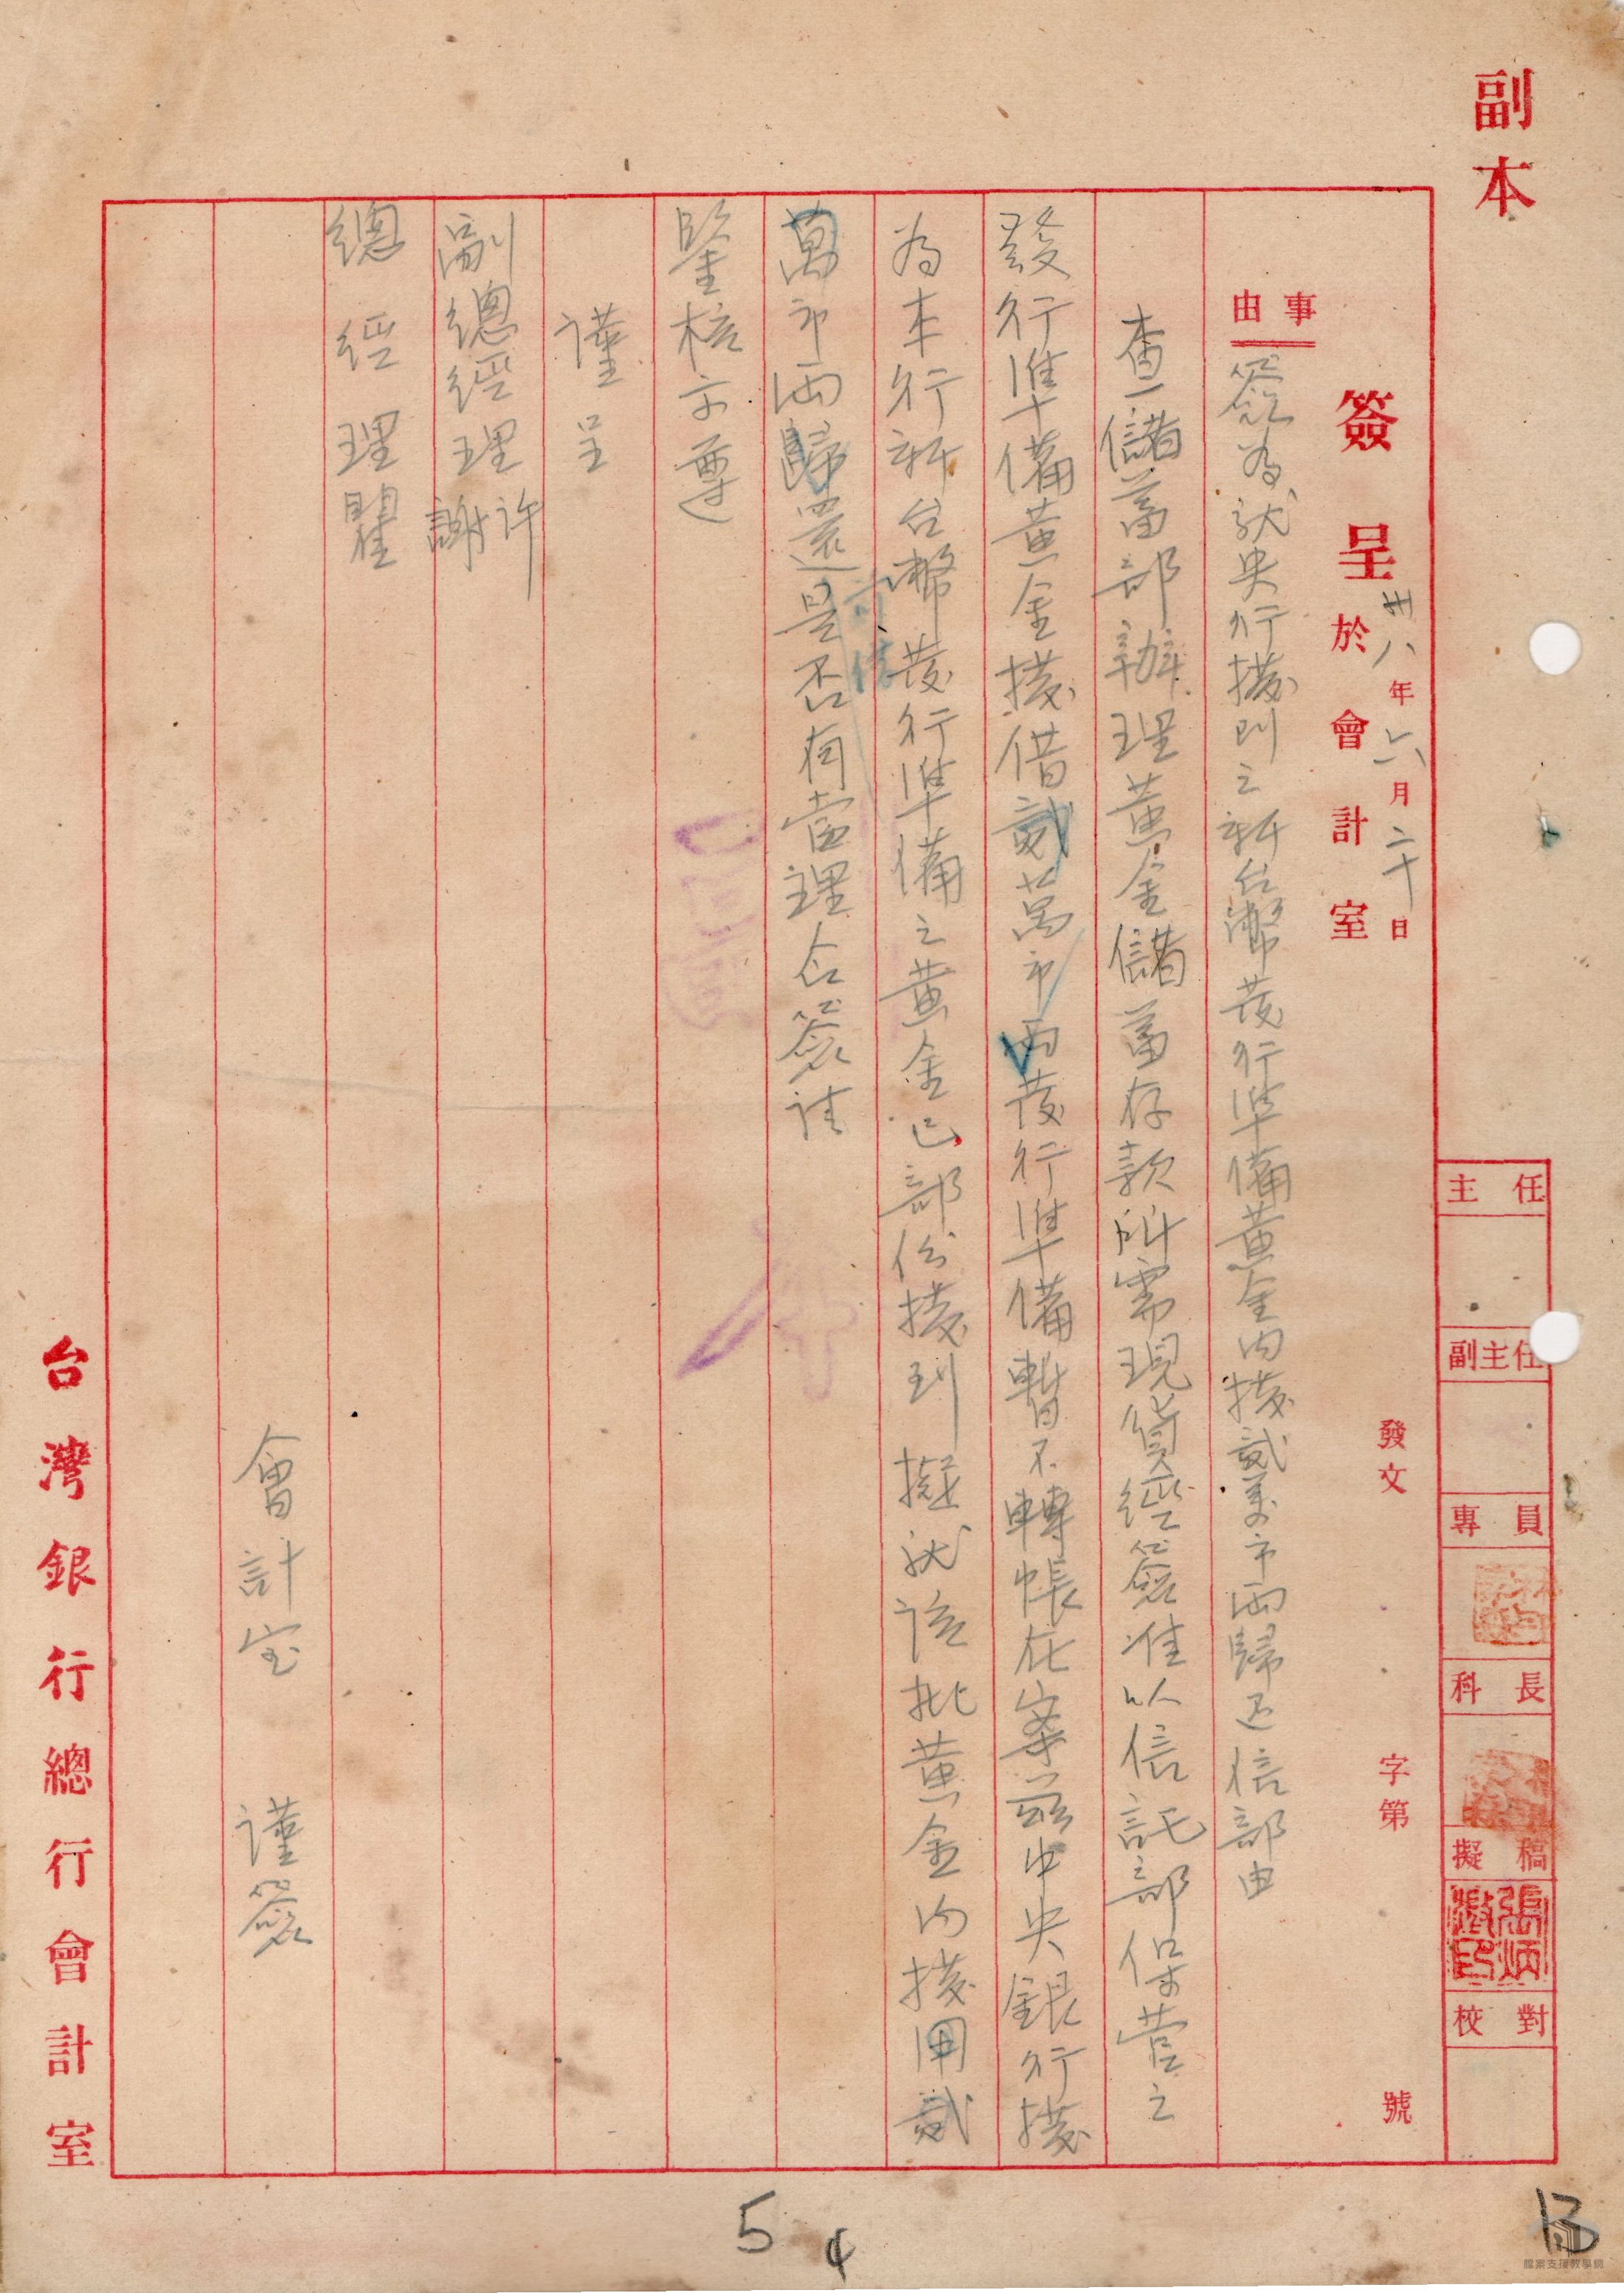 副本
簽呈於會計室
卅八年六月二十日
發文 字第 號
事由
簽為就央行撥到之新台幣發行準備黃金內撥貳萬市兩歸还信部由
查儲蓄部辦理黃金儲蓄存款所需現貨經簽准以信託部保管之
發行準備黃金撥借貳萬市兩發行準備暫不轉帳在案茲中央銀行撥
為本行新台幣發行準備之黃金已部份撥到擬就該批黃金內撥用貳
萬市兩歸還
是否有當理合簽請
鑒核示遵
謹呈
副總經理 許 謝
總經理 瞿
會計室 謹簽
台灣銀行總行會計室
主任
副主任
專員
科長
擬稿
張炳
校對
5
4
13
檔案支援教學網